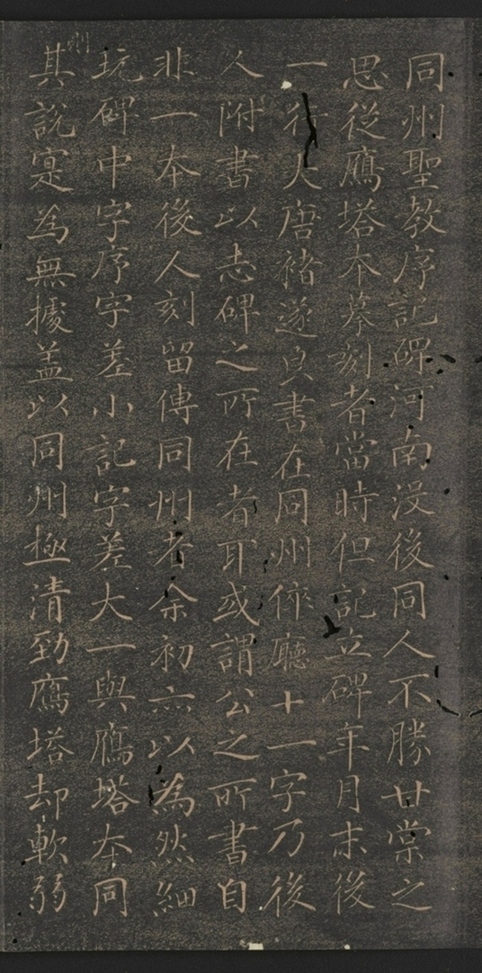 同州聖教序記碑河南沒後同人不勝甘棠之
思從鴈塔本摹刻者當時但記立碑年月末後
一行大唐褚遂良書在同州倅廳十一字乃後
人附書以志碑之所在者耳或謂公之所書自
非一本後人刻留傳同州者余初亦以為然細
玩碑中字序字差小記字差大一與鴈塔本同
其說寔為無據盖以同州極清勁鴈塔却軟弱